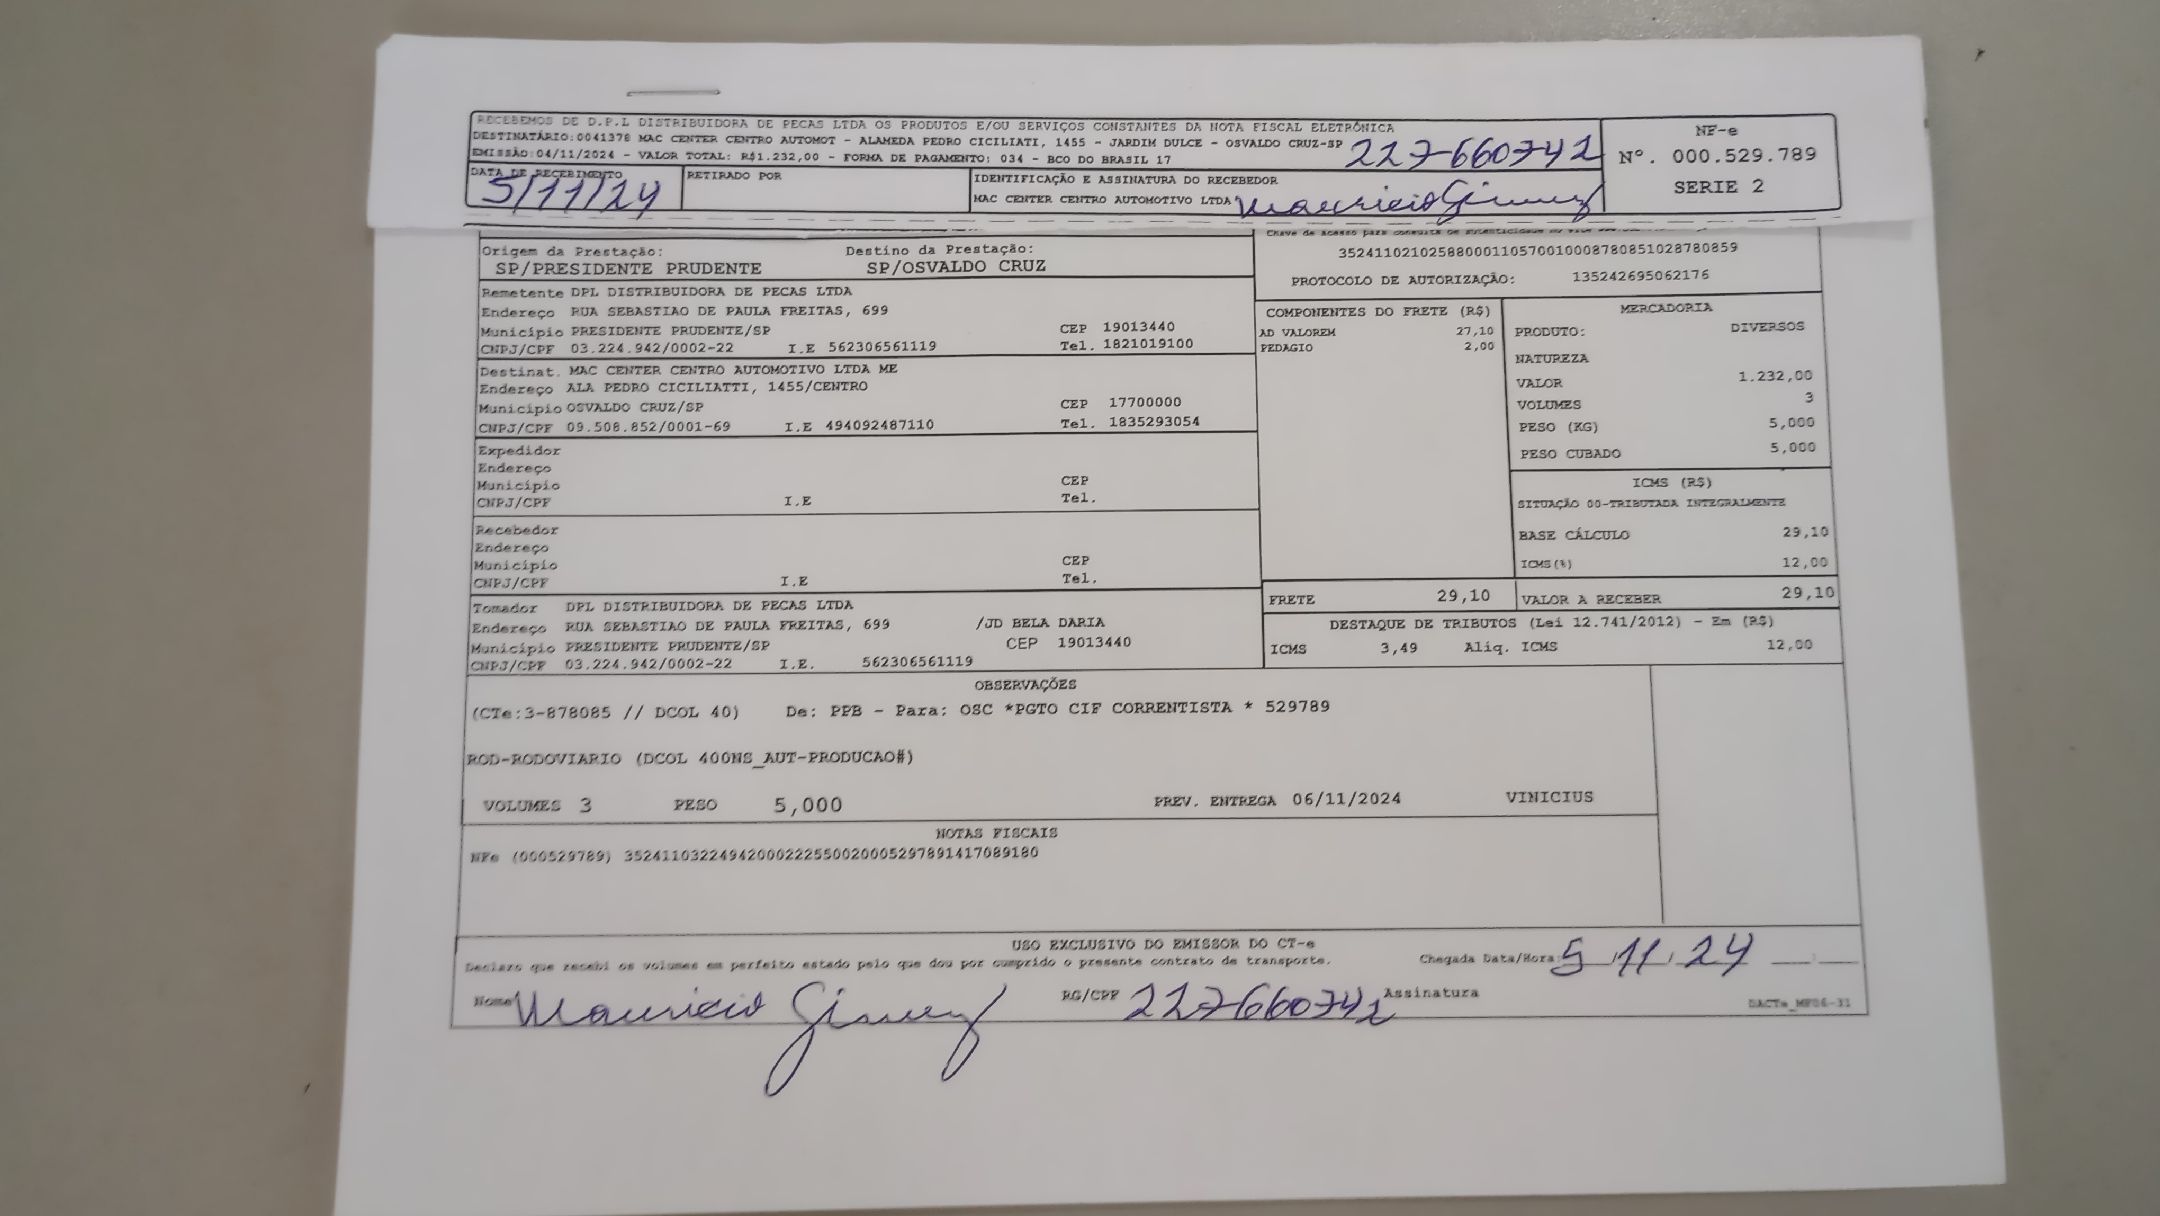 RECEBEMOS DE D.P.L DISTRIBUIDORA DE PECAS LTDA OS PRODUTOS E/OU SERVIÇOS CONSTANTES DA NOTA FISCAL ELETRÔNICA
DESTINATÁRIO:0041378 MAC CENTER CENTRO AUTOMOT - ALAMEDA PEDRO CICILIATI, 1455 - JARDIM DULCE - OSVALDO CRUZ-SP
EMISSÃO:04/11/2024 - VALOR TOTAL: R$1.232,00 - FORMA DE PAGAMENTO: 034 - BCO DO BRASIL 17
227660742
NF-e
Nº. 000.529.789
SERIE 2
DATA DE RECEBIMENTO
5/11/24
RETIRADO POR
IDENTIFICAÇÃO E ASSINATURA DO RECEBEDOR
MAC CENTER CENTRO AUTOMOTIVO LTDA Mauricio Gimenez
Origem da Prestação: Destino da Prestação:
SP/PRESIDENTE PRUDENTE SP/OSVALDO CRUZ
Chave de acesso para consulta de autenticidade no
35241102102588000110570010008780851028780859
PROTOCOLO DE AUTORIZAÇÃO: 135242695062176
Remetente DPL DISTRIBUIDORA DE PECAS LTDA
Endereço RUA SEBASTIAO DE PAULA FREITAS, 699
Município PRESIDENTE PRUDENTE/SP CEP 19013440
CNPJ/CPF 03.224.942/0002-22 I.E 562306561119 Tel. 1821019100
Destinat. MAC CENTER CENTRO AUTOMOTIVO LTDA ME
Endereço ALA PEDRO CICILIATTI, 1455/CENTRO
Município OSVALDO CRUZ/SP CEP 17700000
CNPJ/CPF 09.508.852/0001-69 I.E 494092487110 Tel. 1835293054
Expedidor
Endereço
Município CEP
CNPJ/CPF I.E Tel.
Recebedor
Endereço
Município CEP
CNPJ/CPF I.E Tel.
Tomador DPL DISTRIBUIDORA DE PECAS LTDA
Endereço RUA SEBASTIAO DE PAULA FREITAS, 699 /JD BELA DARIA
Município PRESIDENTE PRUDENTE/SP CEP 19013440
CNPJ/CPF 03.224.942/0002-22 I.E. 562306561119
COMPONENTES DO FRETE (R$)
AD VALOREM 27,10
PEDAGIO 2,00
MERCADORIA
PRODUTO: DIVERSOS
NATUREZA
VALOR 1.232,00
VOLUMES 3
PESO (KG) 5,000
PESO CUBADO 5,000
ICMS (R$)
SITUAÇÃO 00-TRIBUTADA INTEGRALMENTE
BASE CÁLCULO 29,10
ICMS(%) 12,00
FRETE 29,10 VALOR A RECEBER 29,10
DESTAQUE DE TRIBUTOS (Lei 12.741/2012) - Em (R$)
ICMS 3,49 Aliq. ICMS 12,00
OBSERVAÇÕES
(CTe:3-878085 // DCOL 40) De: PPB - Para: OSC *PGTO CIF CORRENTISTA * 529789
ROD-RODOVIARIO (DCOL 400NS_AUT-PRODUCAO#)
VOLUMES 3 PESO 5,000 PREV. ENTREGA 06/11/2024 VINICIUS
NOTAS FISCAIS
NFe (000529789) 35241103224942000222550020005297891417089180
USO EXCLUSIVO DO EMISSOR DO CT-e
Declaro que recebi os volumes em perfeito estado pelo que dou por cumprido o presente contrato de transporte. Chegada Data/Hora 5/11/24
Nome Mauricio Gimenez RG/CPF 227660742 Assinatura
DACTe_MF06-31